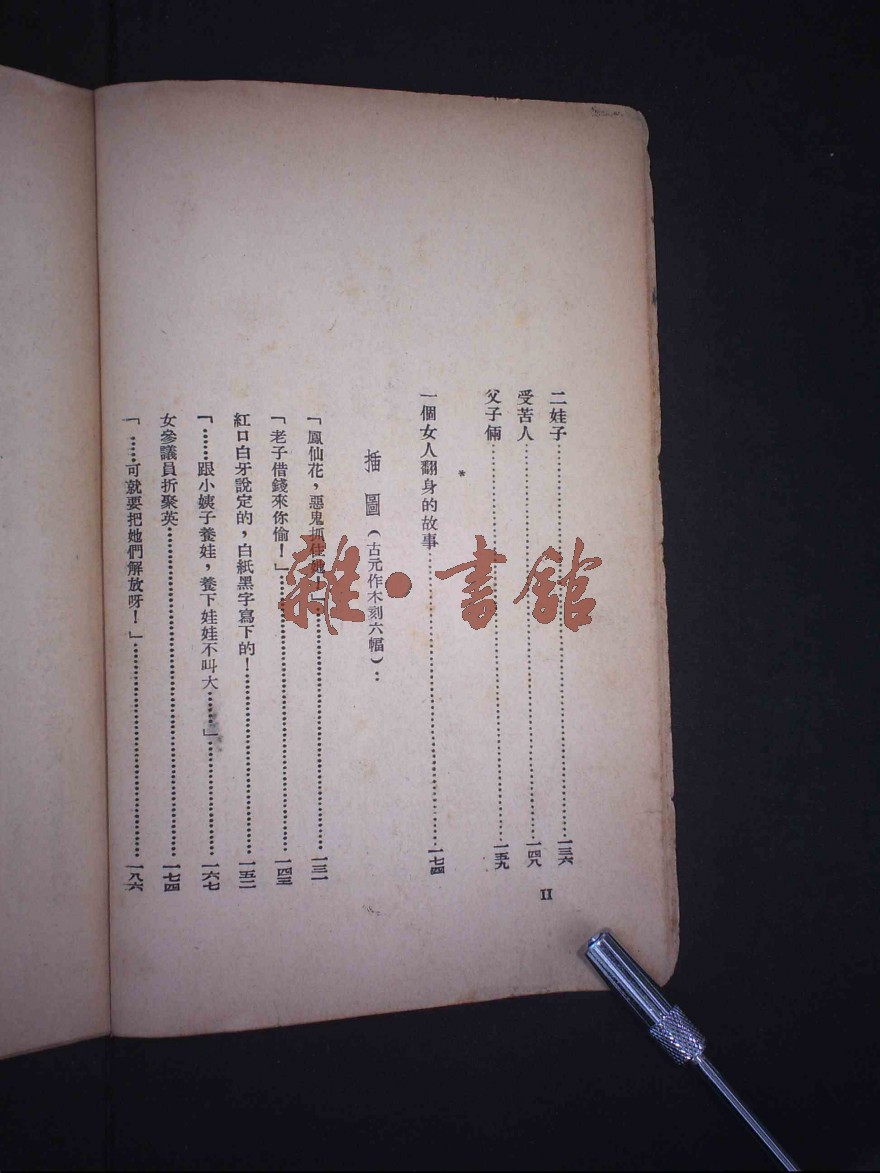 二娃子……一三六
受苦人……一四八
父子倆……一五九
*
一個女人翻身的故事……一七四
插圖（古元作木刻六幅）：
「鳳仙花，惡鬼抓住她！」……一三一
「老子借錢來你偷！」……一四三
紅口白牙說定的，白紙黑字寫下的！……一五二
「……跟小姨子養娃，養下娃娃不叫大……」……一六七
女參議員折聚英……一七四
「……可就要把她們解放呀！」……一八六
II
雜·書館